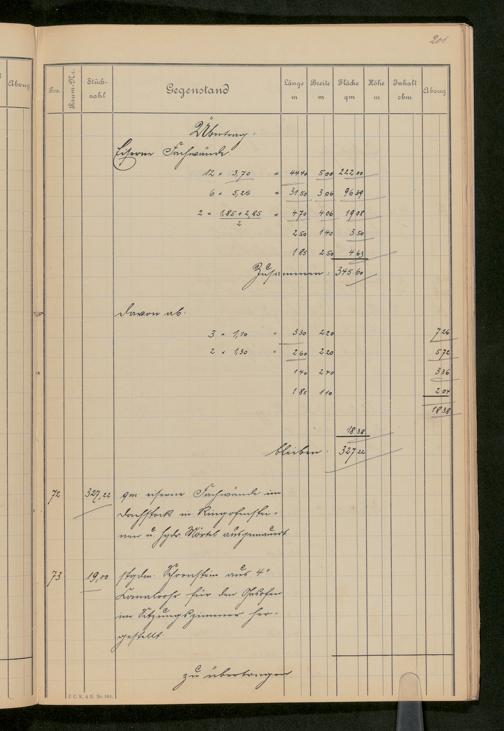 201
Pos. Raum-Nr. Stückzahl Gegenstand Länge m Breite m Fläche qm Höhe m Inhalt cbm Abzug
Übertrag:
Eiserne Fachwände
12 × 3,70 = 44 40 5 00 222 00
6 × 5,25 = 31 50 3 06 96 39
2 × 1,85 + 2,85 / 2 = 4 70 4 06 19 08
2 50 1 40 3 50
1 85 2 50 4 63
Zusammen: 345 60
Davon ab:
3 × 1,10 = 3 30 2 20 7 26
2 × 1,30 = 2 60 2 20 5 72
1 40 2 40 3 36
1 85 1 10 2 04
18 38
18 38
bleiben: 327 22
72 327,22 qm eiserne Fachwände im
Dachstock in Ringofenstei-
nen u. hydr. Mörtel ausgemauert
73 19,00 stgdm. Schornstein aus
für den Gasofen
im Sitzungszimmer her-
gestellt
zu übertragen